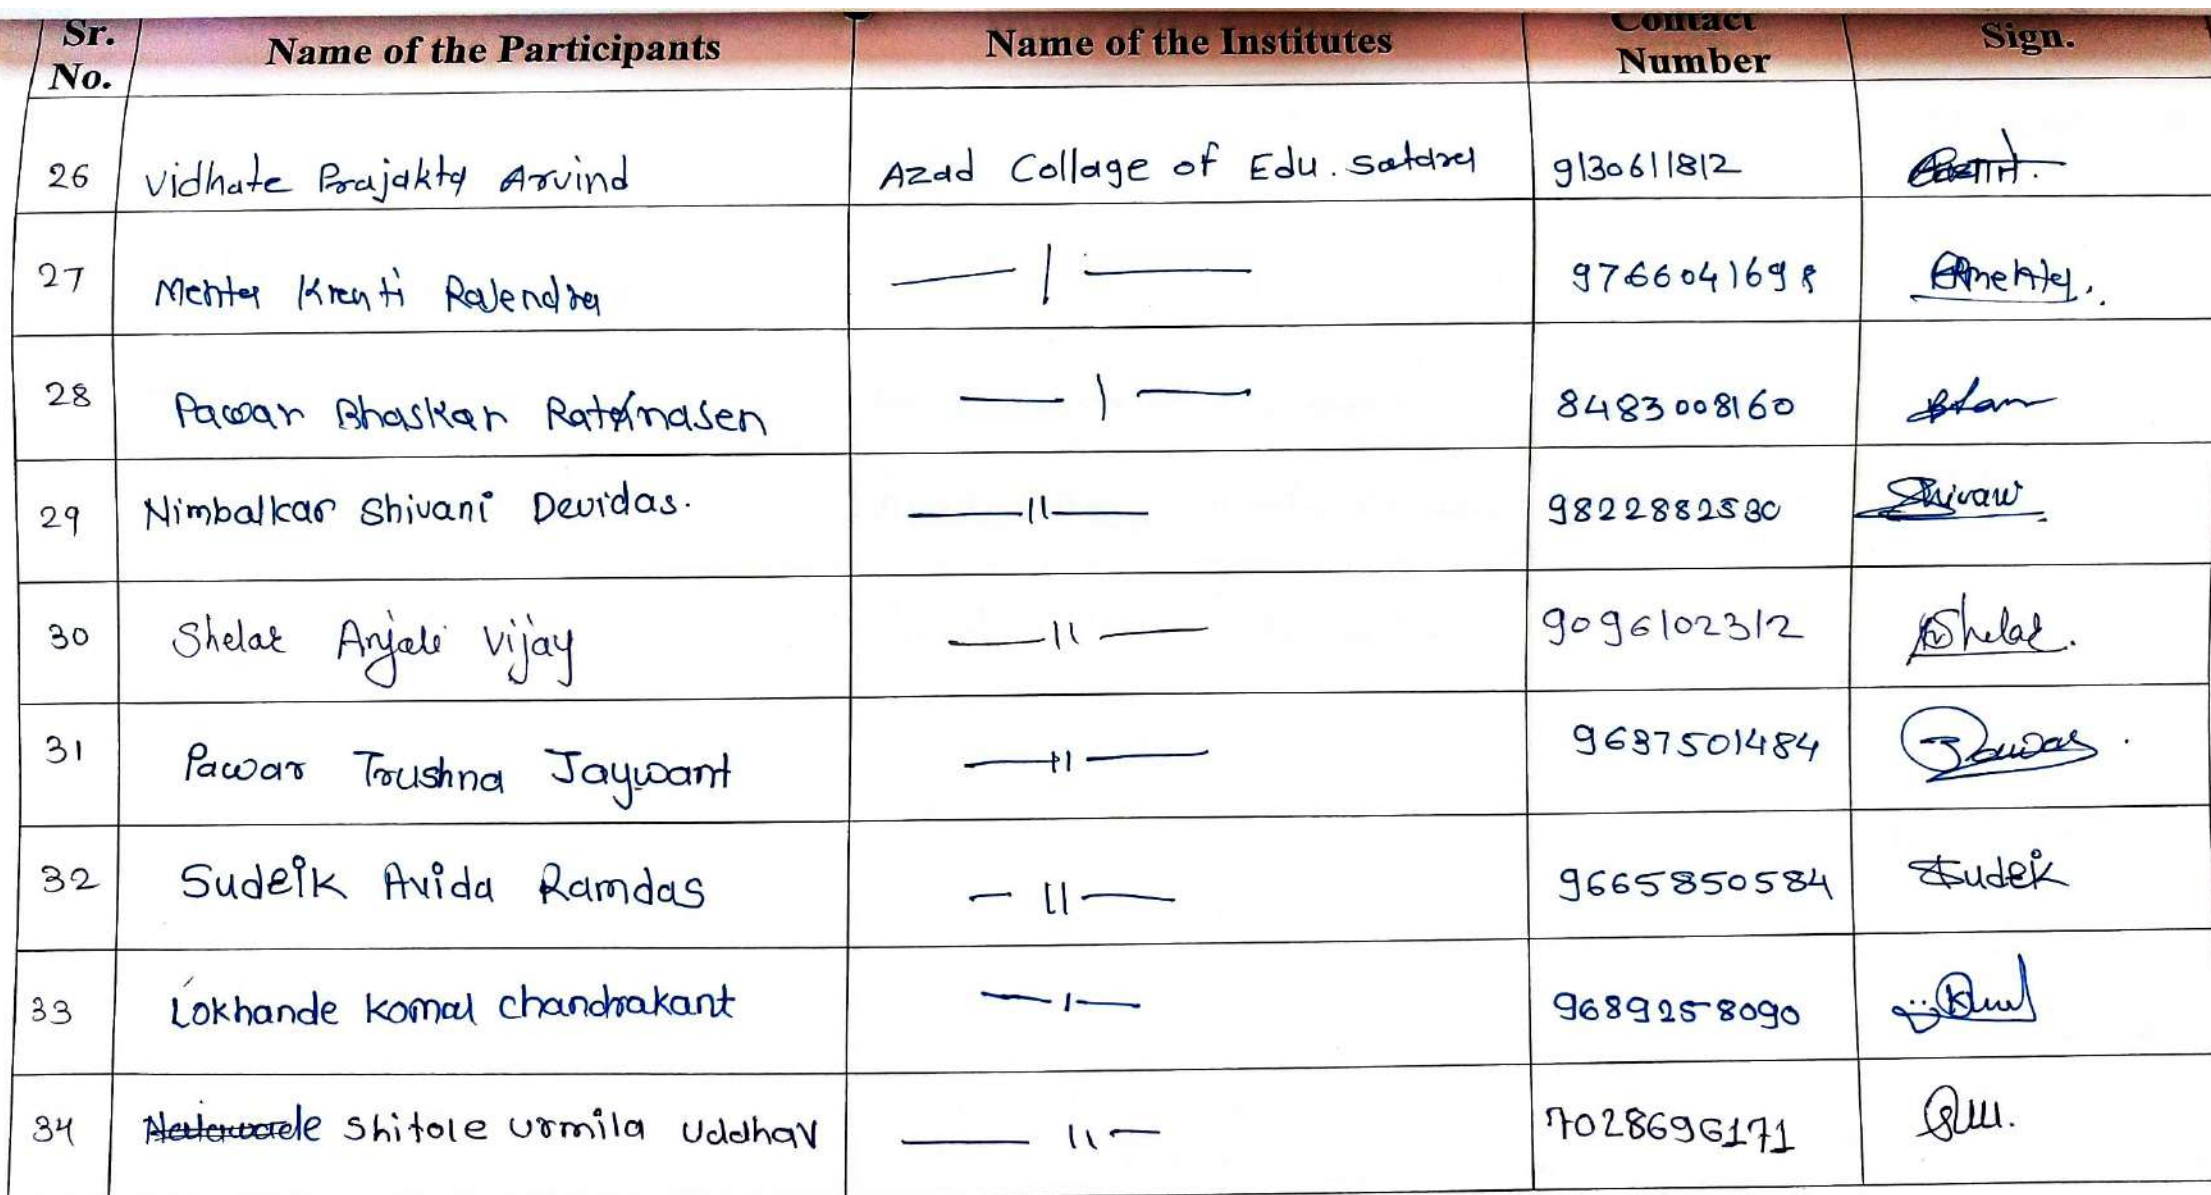 Sr. No. Name of the Participants Name of the Institutes Contact Number Sign.
26 Vidhate Prajakta Arvind Azad Collage of Edu. Satara 9130611812
27 Mehta Kranti Rajendra — | — 9766041698 Mehta.
28 Pawar Bhaskar Ratnasen — | — 8483008160
29 Nimbalkar Shivani Devidas. — 11 — 9822882530 Shivani
30 Shelar Anjali Vijay — 11 — 9096102312 Shelar.
31 Pawar Trushna Jaywant — 11 — 9637501484 Pawar.
32 Sudeik Avida Ramdas — 11 — 9665850584 Sudeik
33 Lokhande Komal Chandrakant — 1 — 9689258090
34 Shitole Urmila Uddhav — 11 — 7028696171